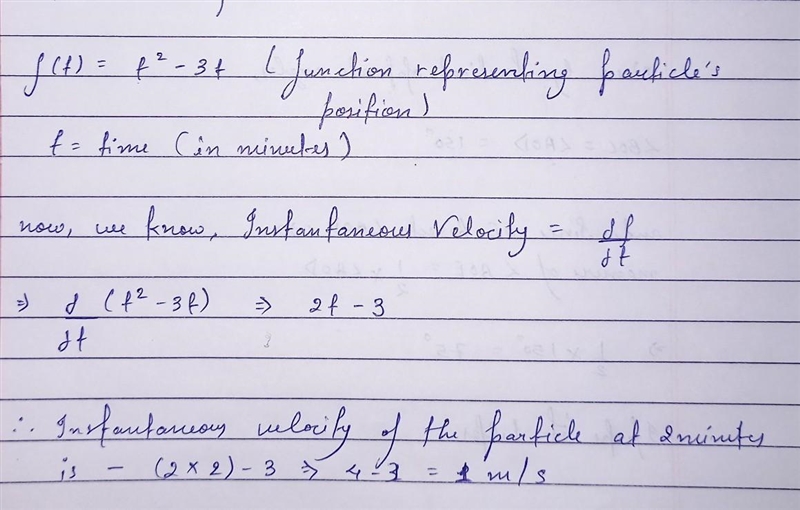 f(t) = t² - 3t ( function representing particle's
position)
t = time (in minutes)
now, we know, Instantaneous Velocity = df/dt
⇒ d/dt (t² - 3t) ⇒ 2t - 3
∴ Instantaneous velocity of the particle at 2 minutes
is - (2 × 2) - 3 ⇒ 4 - 3 = 1 m/s